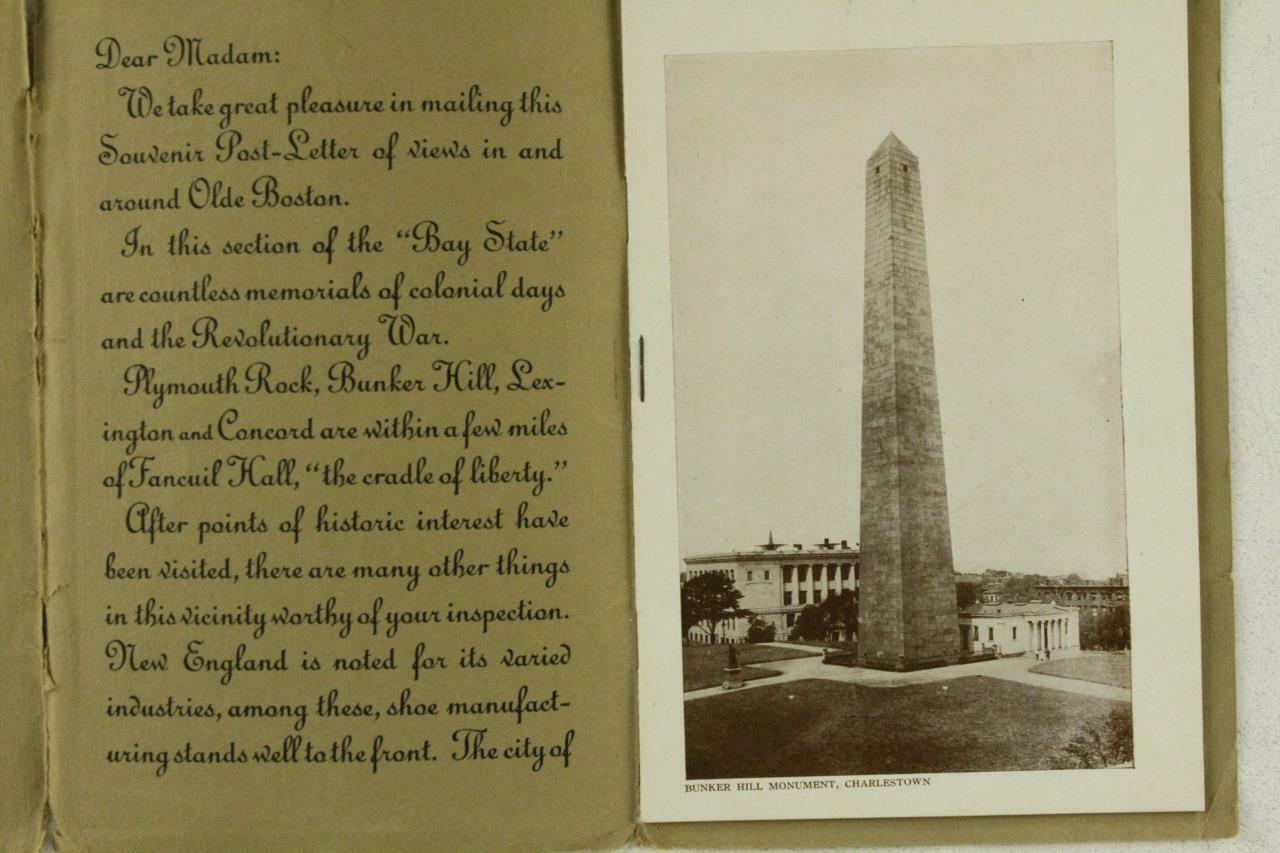 Dear Madam:
We take great pleasure in mailing this
Souvenir Post-Letter of views in and
around Olde Boston.
In this section of the “Bay State”
are countless memorials of colonial days
and the Revolutionary War.
Plymouth Rock, Bunker Hill, Lex-
ington and Concord are within a few miles
of Fancuil Hall, “the cradle of liberty.”
After points of historic interest have
been visited, there are many other things
in this vicinity worthy of your inspection.
New England is noted for its varied
industries, among these, shoe manufact-
uring stands well to the front. The city of
BUNKER HILL MONUMENT, CHARLESTOWN